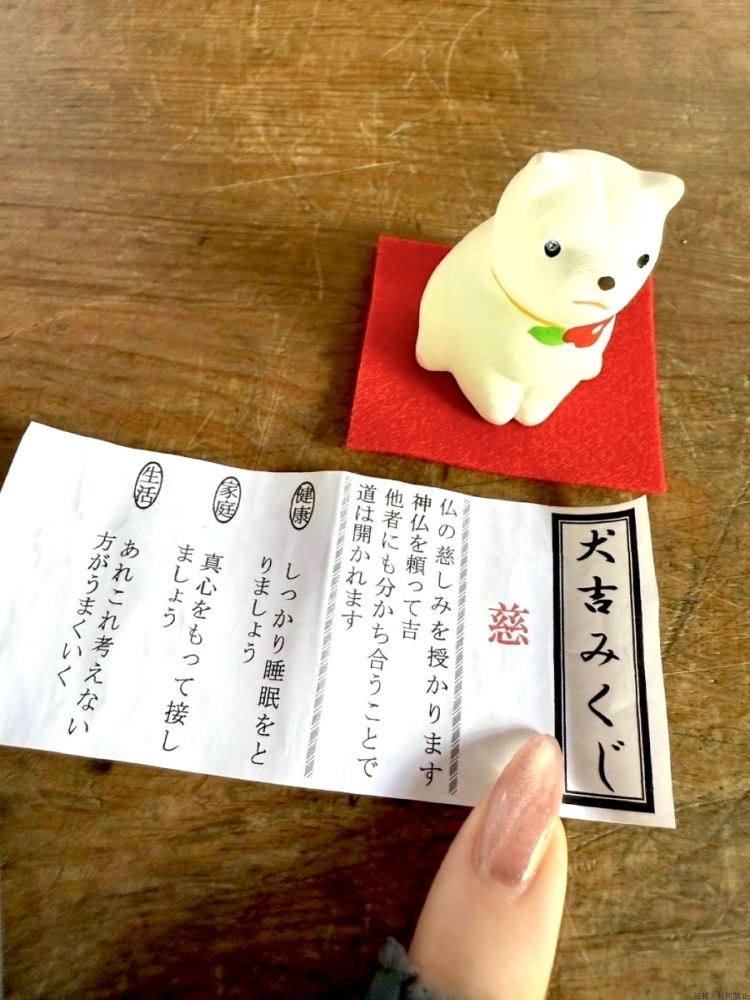 犬吉みくじ
慈
仏の慈しみを授かります
神仏を頼って吉
他者にも分かち合うことで
道は開かれます
健康
しっかり睡眠をと
りましょう
家庭
真心をもって接し
ましょう
生活
あれこれ考えない
方がうまくいく